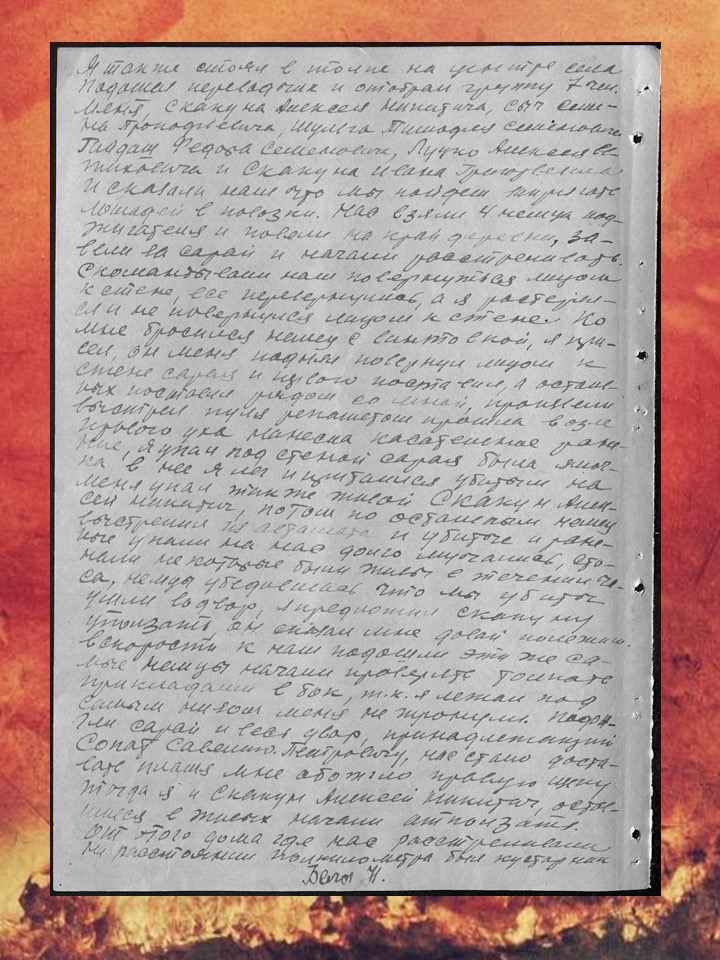 Я также стоял в толпе на центре села
Подошел переводчик и отобрал группу 7 чел.
Меня, Скакуна Алексея Никитича, Сыч Семе-
на Прокофьевича, Шульга Тимофея Семеновича
Гайдаш Федора Семеновича, Луцко Алексея
и Скакуна Ивана Григорьевича
И сказали нам что мы пойдем запрягать
лошадей в повозки. Нас взяли 4 немца под-
жигателя и повели на край деревни, за-
вели за сарай и начали расстреливать.
Скомандывали нам повернуться лицом
к стене, все перевернулись, а я растерял-
ся и не повернулся лицом к стене. Ко
мне бросился немец с винтовкой, я при-
сел, он меня поднял повернул лицом к
стене сарая и первого поставил, а осталь-
ных поставил рядом со мной, произвели
выстрел пуля прошла возле
правого уха нанесла касательное ране-
ние, я упал под стеной сарая была ямоч-
ка в нее я лег и притаился убитым на
меня упал также живой Скакун Алек-
сей Никитич, потом по остальным немец
выстрелил из автомата и убитые и ране-
ные упали на нас долго мучались, сто-
нали некоторые были живы в течении ча-
са, немцы убедовшись что мы убиты
ушли во двор, я предложил Скакуну
уползать, он сказал мне давай полежим.
вскорости к нам подошли эти же са-
мые немцы начали проверять толкать
прикладами в бок, т.к. я лежал под
самым низом меня не тронули. Подож-
гли сарай и весь двор, принадлежащий
Сопат Савелию Петровичу, нас стало доста-
вать пламя мне обожгло правую щеку
тогда я и Скакун Алексей Никитич, остав-
шиеся в живых начали отползать.
От этого дома где нас расстреливали
на расстоянии полкилометра был кустарник